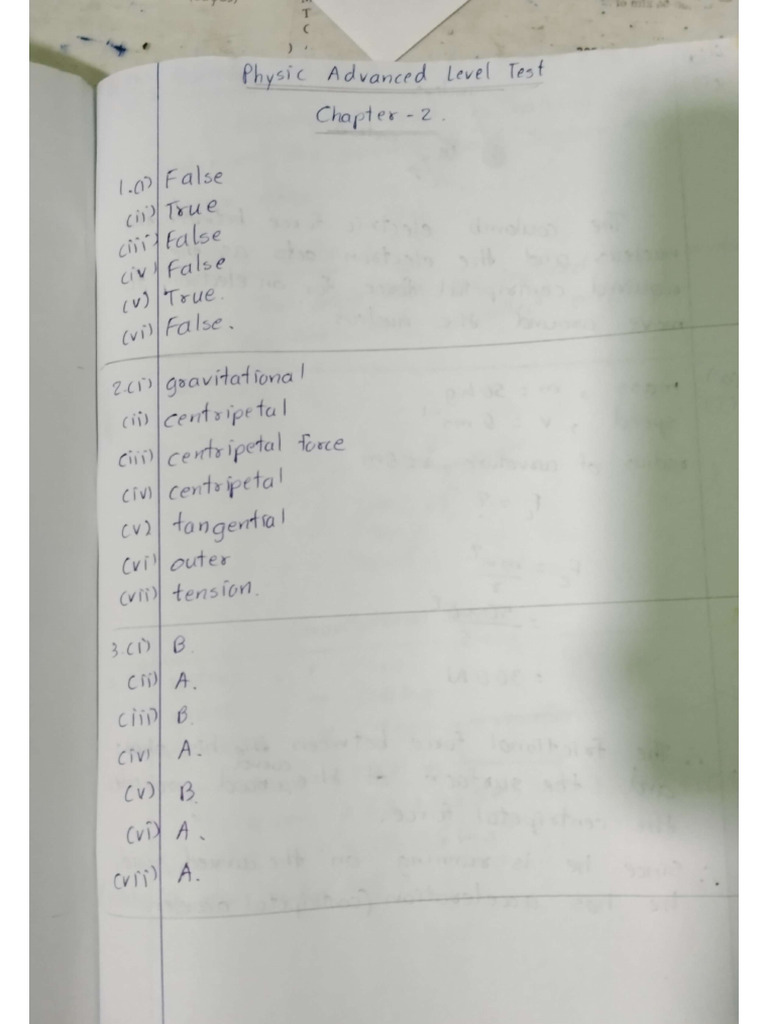 Physic Advanced Level Test
Chapter - 2.
1.(i) False
(ii) True
(iii) False
(iv) False
(v) True.
(vi) False.
2.(i) gravitational
(ii) centripetal
(iii) centripetal force
(iv) centripetal
(v) tangential
(vi) outer
(vii) tension.
3.(i) B.
(ii) A.
(iii) B.
(iv) A.
(v) B.
(vi) A.
(vii) A.